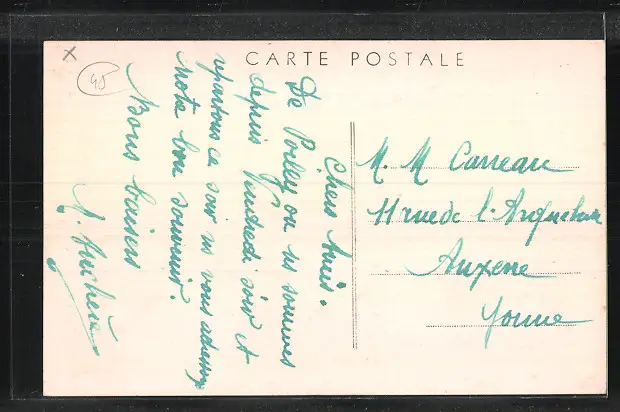 CARTE POSTALE
x
40
Chers Amis.
De Poilly ou ns sommes
depuis Vendredi soir et
repartons ce soir ns vous adressons
notre bon souvenir.
Bons baisers
M. M Carreau
11 rue de l'Arquebuse
Auxerre
Yonne